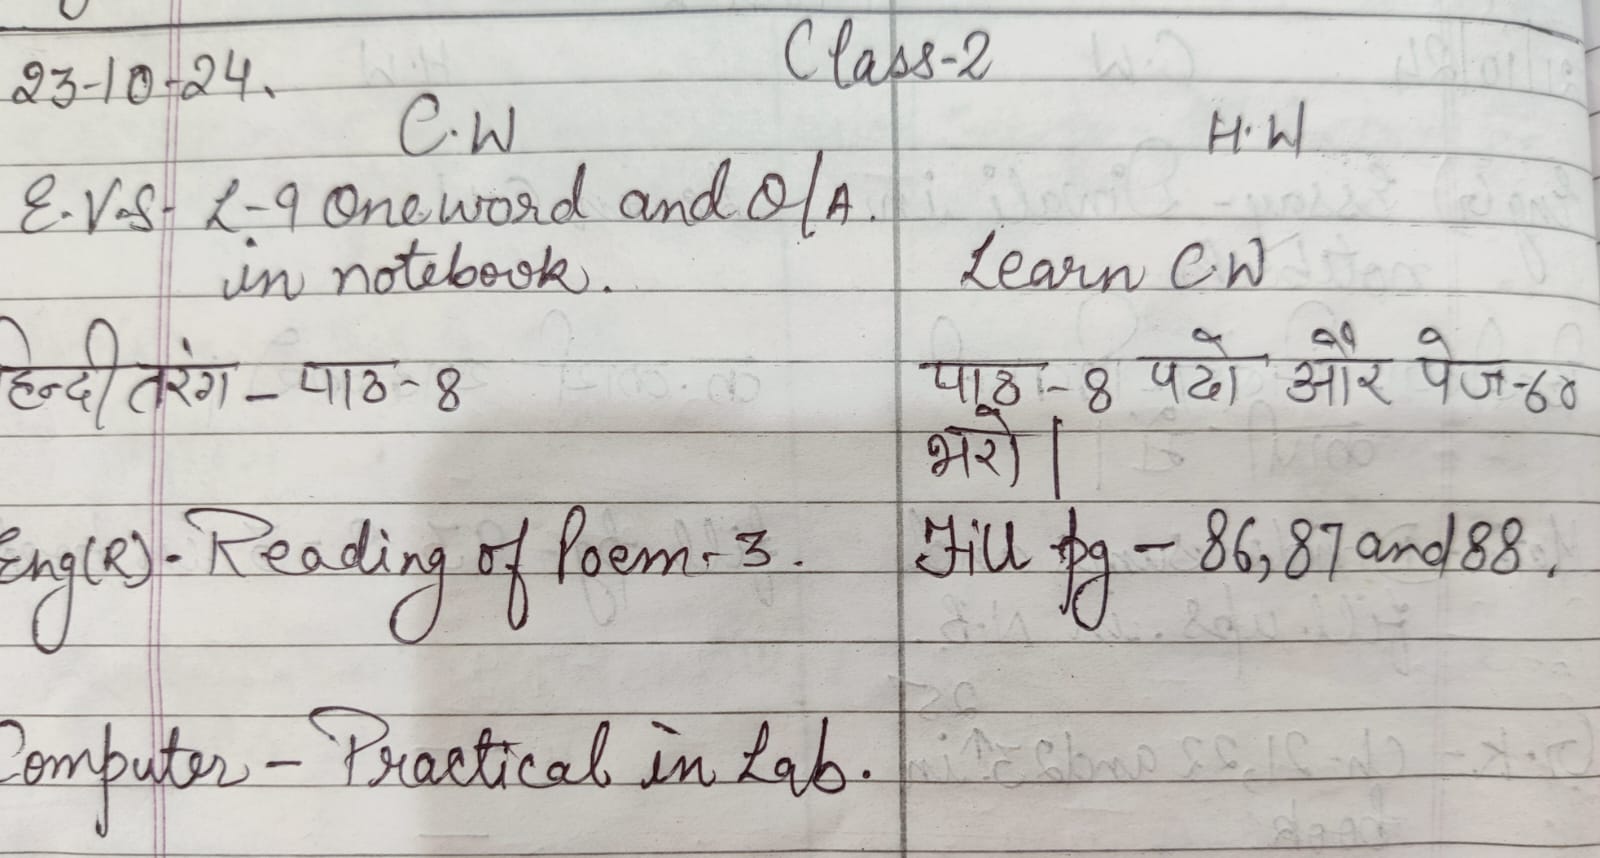 Class-2
23-10-24.
C.W
H.W
E.V.S- L-9 One word and O/A.
in notebook.
Learn C.W
हिन्दी तरंग - पाठ - 8
पाठ - 8 पढो और पेज-60
भरो |
Eng(R)- Reading of Poem-3.
Fill pg - 86, 87 and 88.
Computer - Practical in Lab.